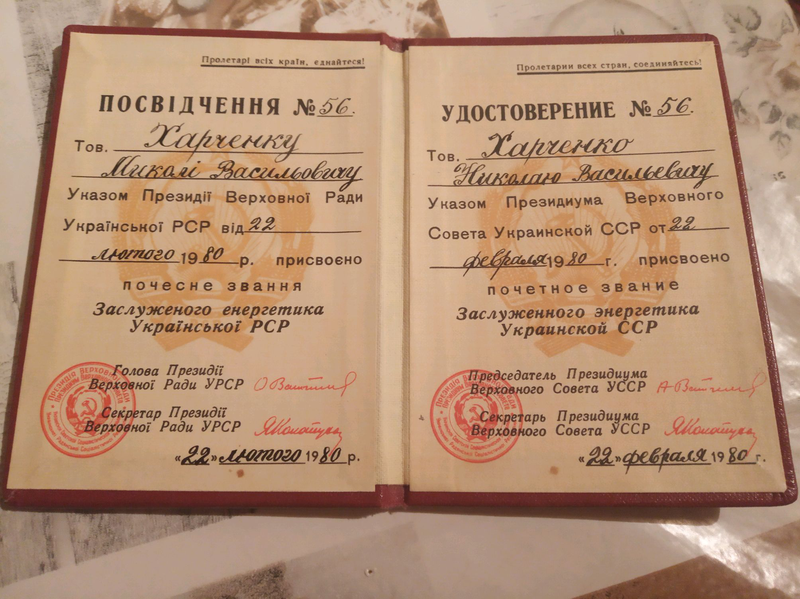 Пролетарі всіх країн, єднайтеся!
ПОСВІДЧЕННЯ № 56.
Тов. Харченку
Миколі Васильовичу
Указом Президії Верховної Ради
Української РСР від 22
лютого 1980 р. присвоєно
почесне звання
Заслуженого енергетика
Української РСР
Голова Президії
Верховної Ради УРСР
Секретар Президії
Верховної Ради УРСР
«22» лютого 1980 р.
Пролетарии всех стран, соединяйтесь!
УДОСТОВЕРЕНИЕ № 56.
Тов. Харченко
Николаю Васильевичу
Указом Президиума Верховного
Совета Украинской ССР от 22
февраля 1980 г. присвоено
почетное звание
Заслуженного энергетика
Украинской ССР
Председатель Президиума
Верховного Совета УССР
Секретарь Президиума
Верховного Совета УССР
«22» февраля 1980 г.